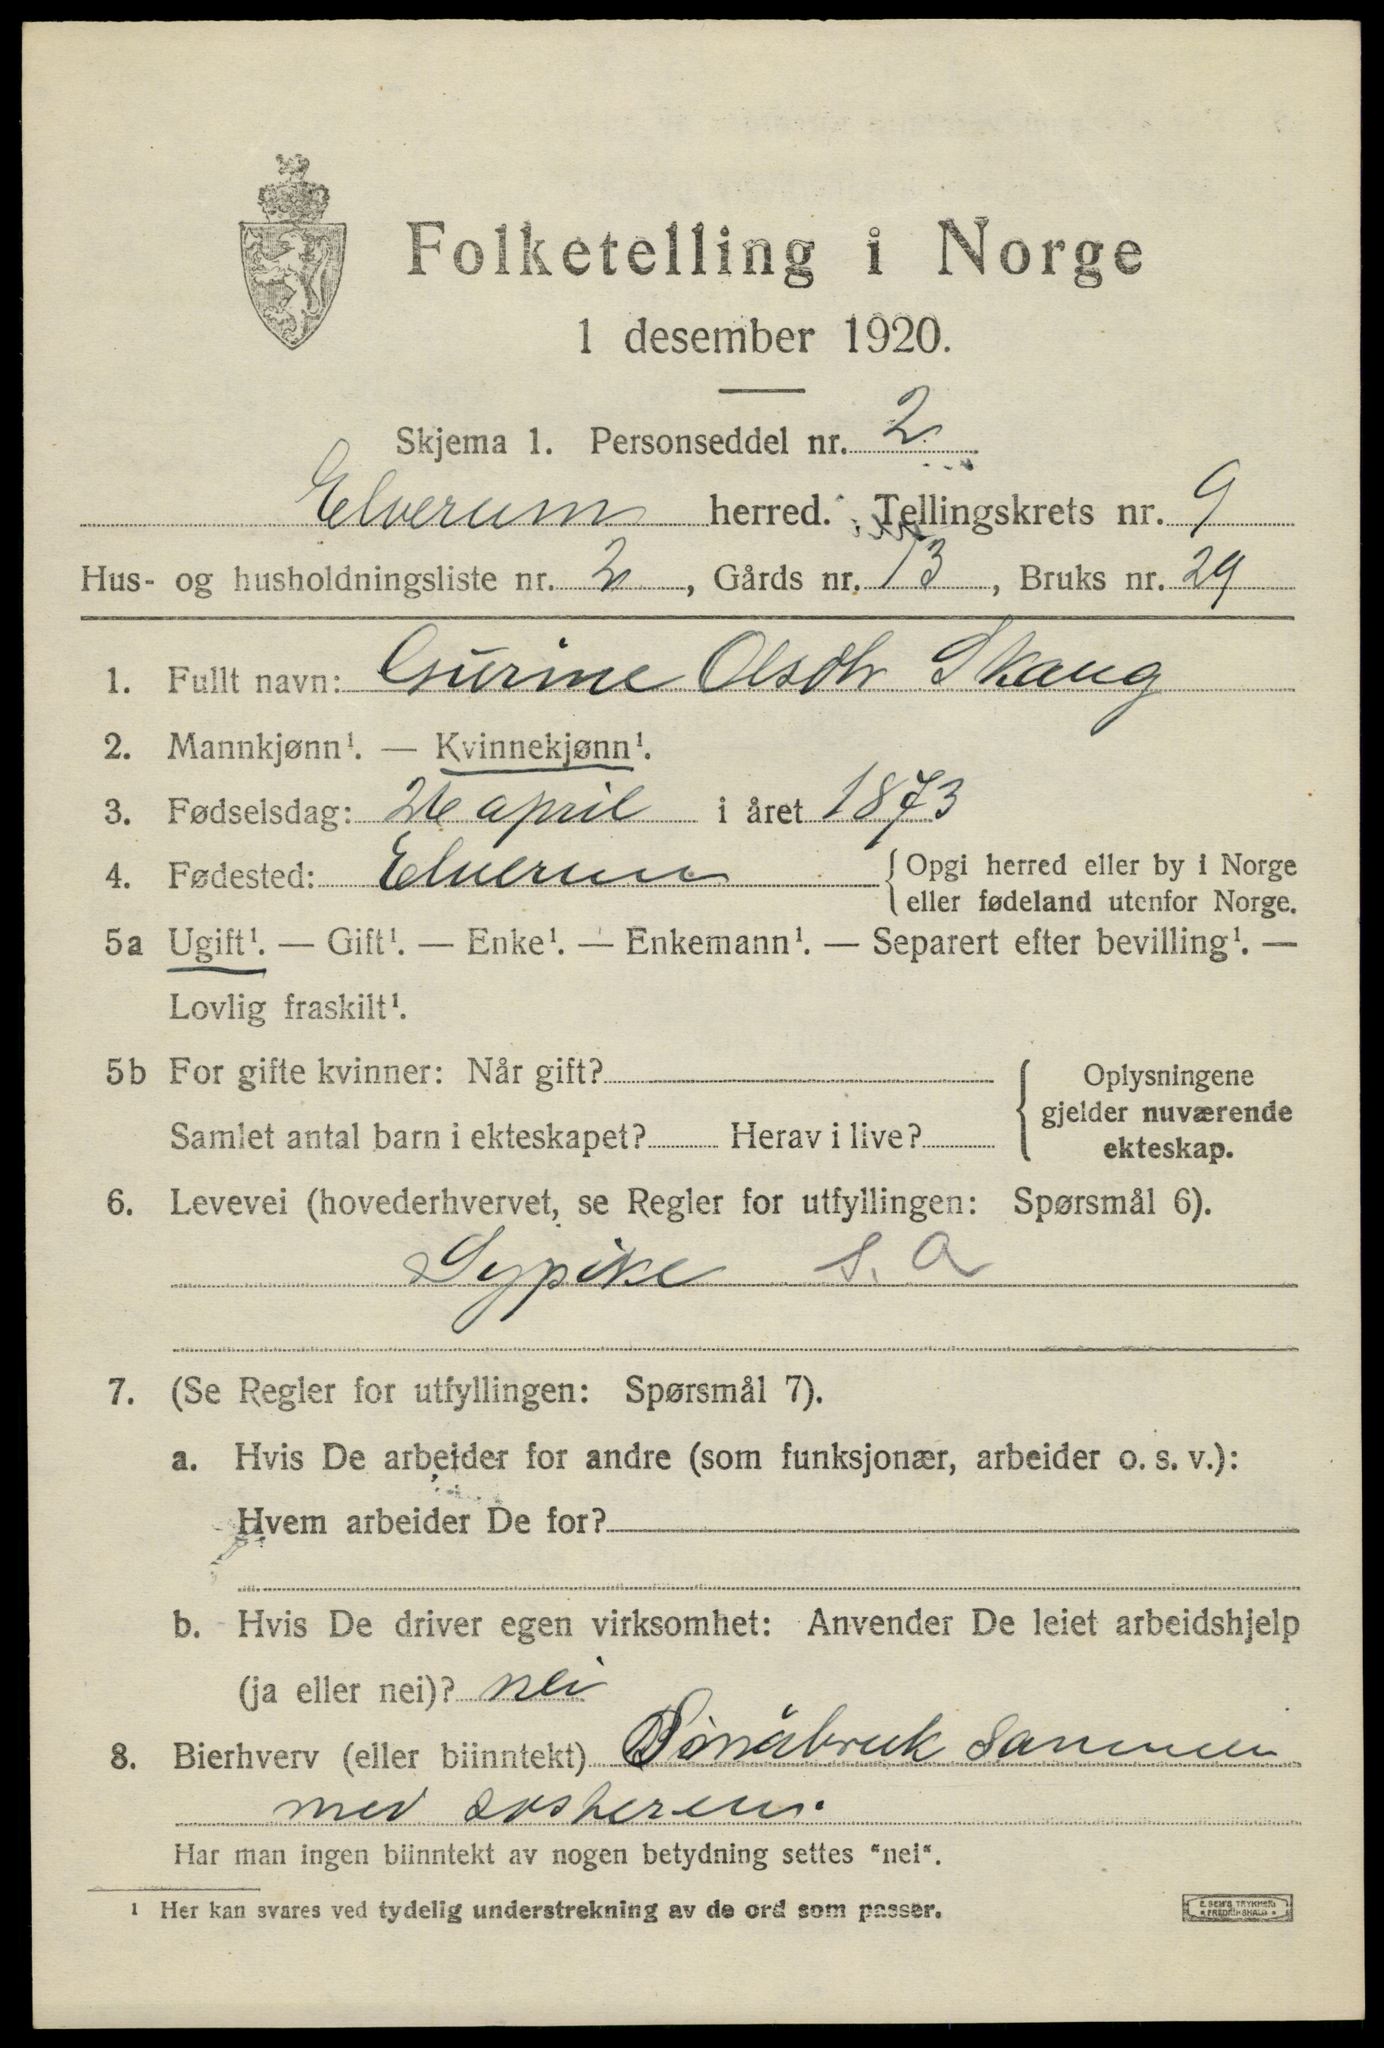 Folketelling i Norge
1 desember 1920.
Skjema 1. Personseddel nr. 2
Elverum herred. Tellingskrets nr. 9
Hus- og husholdningsliste nr. 2, Gårds nr. 13, Bruks nr. 29
1. Fullt navn: Gurine Olsdtr Skaug
2. Mannkjønn¹. — Kvinnekjønn¹.
3. Fødselsdag: 26 april i året 1873
4. Fødested: Elverum { Opgi herred eller by i Norge
eller fødeland utenfor Norge.
5a Ugift¹. — Gift¹. — Enke¹. — Enkemann¹. — Separert efter bevilling¹. —
Lovlig fraskilt¹.
5b For gifte kvinner: Når gift?
Samlet antal barn i ekteskapet? Herav i live?
{ Oplysningene
gjelder nuværende
ekteskap.
6. Levevei (hovederhvervet, se Regler for utfyllingen: Spørsmål 6).
Sypike S. a
7. (Se Regler for utfyllingen: Spørsmål 7).
a. Hvis De arbeider for andre (som funksjonær, arbeider o. s. v.):
Hvem arbeider De for?
b. Hvis De driver egen virksomhet: Anvender De leiet arbeidshjelp
(ja eller nei)? nei
8. Bierhverv (eller biinntekt) Småbruk sammen
med søsteren.
Har man ingen biinntekt av nogen betydning settes "nei".
1 Her kan svares ved tydelig understrekning av de ord som passer.
E. SEM'S TRYKKERI
FREDRIKSHALD